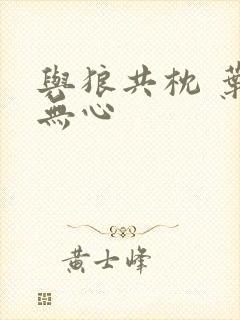 與狼共枕 葉
無心
黃士峰